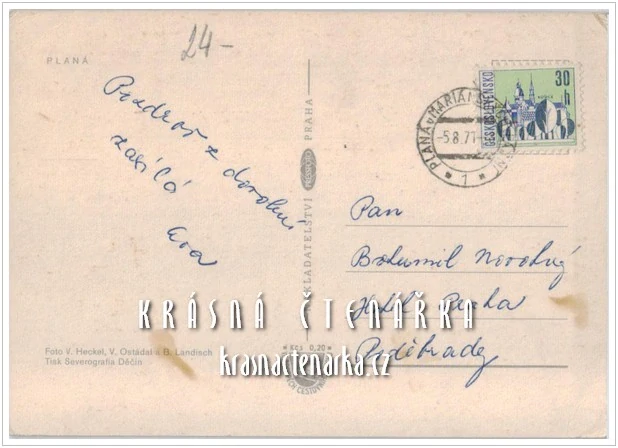 24-
PLANÁ
Pozdrav z dovolené
zasílá
Eva
NAKLADATELSTVÍ
PRAHA
PLANÁ U MARIÁN
-5.8.71
1
ČESKOSLOVENSKO
30
h
Pan
Bohumil Novotný
Hotel Praha
Poděbrady
KRÁSNÁ ČTENÁŘKA
krasnactenarka.cz
Foto V. Heckel, V. Ostádal a B. Landisch
Tisk Severografia Děčín
Kčs 0,20